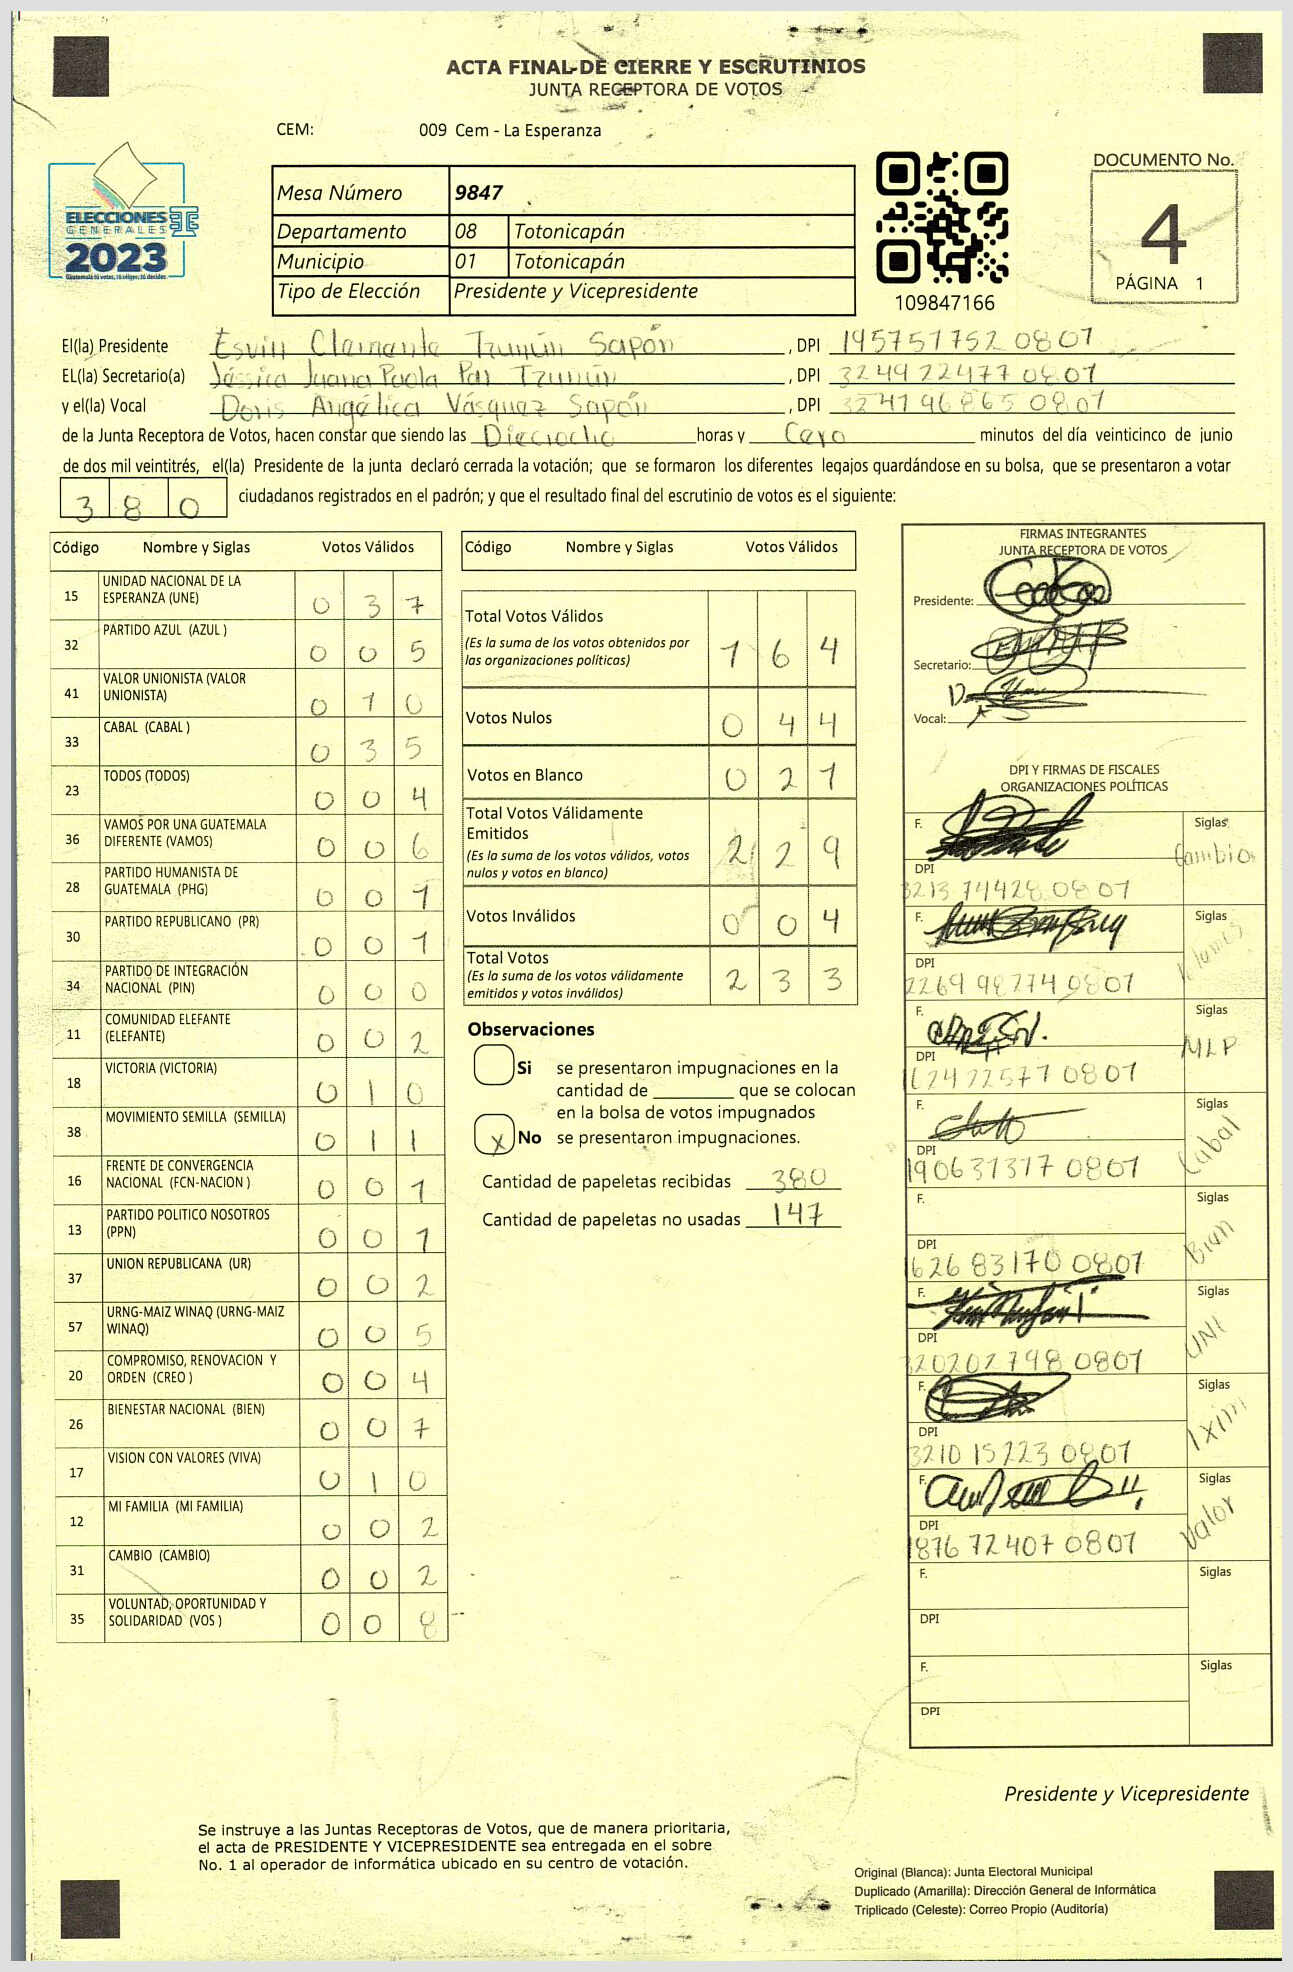 ACTA FINAL DE CIERRE Y ESCRUTINIOS
JUNTA RECEPTORA DE VOTOS
CEM: 009 Cem - La Esperanza
ELECCIONES
GENERALES
2023
Guatemala tú votas, tú eliges, tú decides
Mesa Número 9847
Departamento 08 Totonicapán
Municipio 01 Totonicapán
Tipo de Elección Presidente y Vicepresidente
109847166
DOCUMENTO No.
4
PÁGINA 1
El(la) Presidente Esvin Clemente Tzunún Sapón, DPI 195751752 0807
EL(la) Secretario(a) Jéssica Juana Paola Par Tzunún, DPI 324922477 0807
y el(la) Vocal Doris Angélica Vásquez Sapón, DPI 324196865 0807
de la Junta Receptora de Votos, hacen constar que siendo las Dieciocho horas y Cero minutos del día veinticinco de junio
de dos mil veintitrés, el(la) Presidente de la junta declaró cerrada la votación; que se formaron los diferentes legajos guardándose en su bolsa, que se presentaron a votar
380 ciudadanos registrados en el padrón; y que el resultado final del escrutinio de votos es el siguiente:
Código Nombre y Siglas Votos Válidos
15 UNIDAD NACIONAL DE LA ESPERANZA (UNE) 0 3 7
32 PARTIDO AZUL (AZUL ) 0 0 5
41 VALOR UNIONISTA (VALOR UNIONISTA) 0 1 0
33 CABAL (CABAL ) 0 3 5
23 TODOS (TODOS) 0 0 4
36 VAMOS POR UNA GUATEMALA DIFERENTE (VAMOS) 0 0 6
28 PARTIDO HUMANISTA DE GUATEMALA (PHG) 0 0 1
30 PARTIDO REPUBLICANO (PR) 0 0 1
34 PARTIDO DE INTEGRACIÓN NACIONAL (PIN) 0 0 0
11 COMUNIDAD ELEFANTE (ELEFANTE) 0 0 2
18 VICTORIA (VICTORIA) 0 1 0
38 MOVIMIENTO SEMILLA (SEMILLA) 0 1 1
16 FRENTE DE CONVERGENCIA NACIONAL (FCN-NACION ) 0 0 1
13 PARTIDO POLITICO NOSOTROS (PPN) 0 0 1
37 UNION REPUBLICANA (UR) 0 0 2
57 URNG-MAIZ WINAQ (URNG-MAIZ WINAQ) 0 0 5
20 COMPROMISO, RENOVACION Y ORDEN (CREO ) 0 0 4
26 BIENESTAR NACIONAL (BIEN) 0 0 7
17 VISION CON VALORES (VIVA) 0 1 0
12 MI FAMILIA (MI FAMILIA) 0 0 2
31 CAMBIO (CAMBIO) 0 0 2
35 VOLUNTAD, OPORTUNIDAD Y SOLIDARIDAD (VOS ) 0 0 8
Código Nombre y Siglas Votos Válidos
Total Votos Válidos 1 6 4
(Es la suma de los votos obtenidos por
las organizaciones políticas)
Votos Nulos 0 4 4
Votos en Blanco 0 2 1
Total Votos Válidamente
Emitidos 2 2 9
(Es la suma de los votos válidos, votos
nulos y votos en blanco)
Votos Inválidos 0 0 4
Total Votos 2 3 3
(Es la suma de los votos válidamente
emitidos y votos inválidos)
Observaciones
Si se presentaron impugnaciones en la
cantidad de ________ que se colocan
en la bolsa de votos impugnados
x No se presentaron impugnaciones.
Cantidad de papeletas recibidas 380
Cantidad de papeletas no usadas 147
FIRMAS INTEGRANTES
JUNTA RECEPTORA DE VOTOS
Presidente:
Secretario:
Vocal:
DPI Y FIRMAS DE FISCALES
ORGANIZACIONES POLÍTICAS
F. Siglas Cambio
DPI 3213 74428 0807
F. Siglas
DPI 2269 98774 0807
F. Siglas MLP
DPI 162422577 0807
F. Siglas Cabal
DPI 190631317 0807
F. Siglas Bien
DPI 1626 83170 0807
F. Siglas UNE
DPI 320202798 0807
F. Siglas Ixim
DPI 3210 15223 0807
F. Siglas Valor
DPI 1876 72407 0807
F. Siglas
DPI
F. Siglas
DPI
Presidente y Vicepresidente
Se instruye a las Juntas Receptoras de Votos, que de manera prioritaria,
el acta de PRESIDENTE Y VICEPRESIDENTE sea entregada en el sobre
No. 1 al operador de informática ubicado en su centro de votación.
Original (Blanca): Junta Electoral Municipal
Duplicado (Amarilla): Dirección General de Informática
Triplicado (Celeste): Correo Propio (Auditoría)